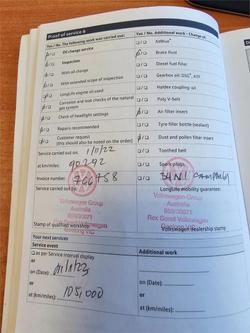 Proof of service 6
Yes / No The following work was carried out:
Oil change service
Inspection
With oil change
With extended scope of inspection
LongLife engine oil used
Corrosion and leak checks of the natural gas system
Check of headlight settings
Repairs recommended
Customer request
(this should be noted on the order)
Service carried out on:
at km/miles: 90292
Invoice number: 766758
Service carried out by:
Volkswagen Group
Australia
Stamp of qualified workshop
Yes / No Additional work - Change of
AdBlue®
Brake fluid
Diesel fuel filter
Gearbox oil: DSG®, ATF
Haldex coupling oil
Poly V-belt
Air filter insert
Tyre filler bottle (sealant)
Dust and pollen filter insert
Toothed belt
Spark plugs
LongLife mobility guarantee:
Volkswagen Group
Australia
Rex Gorell Volkswagen
Volkswagen dealership stamp
Your next services
Service event
As per Service Interval display
or
on (Date):
or
at (km/miles): 105,000
Additional work
on (Date):
or
at (km/miles):